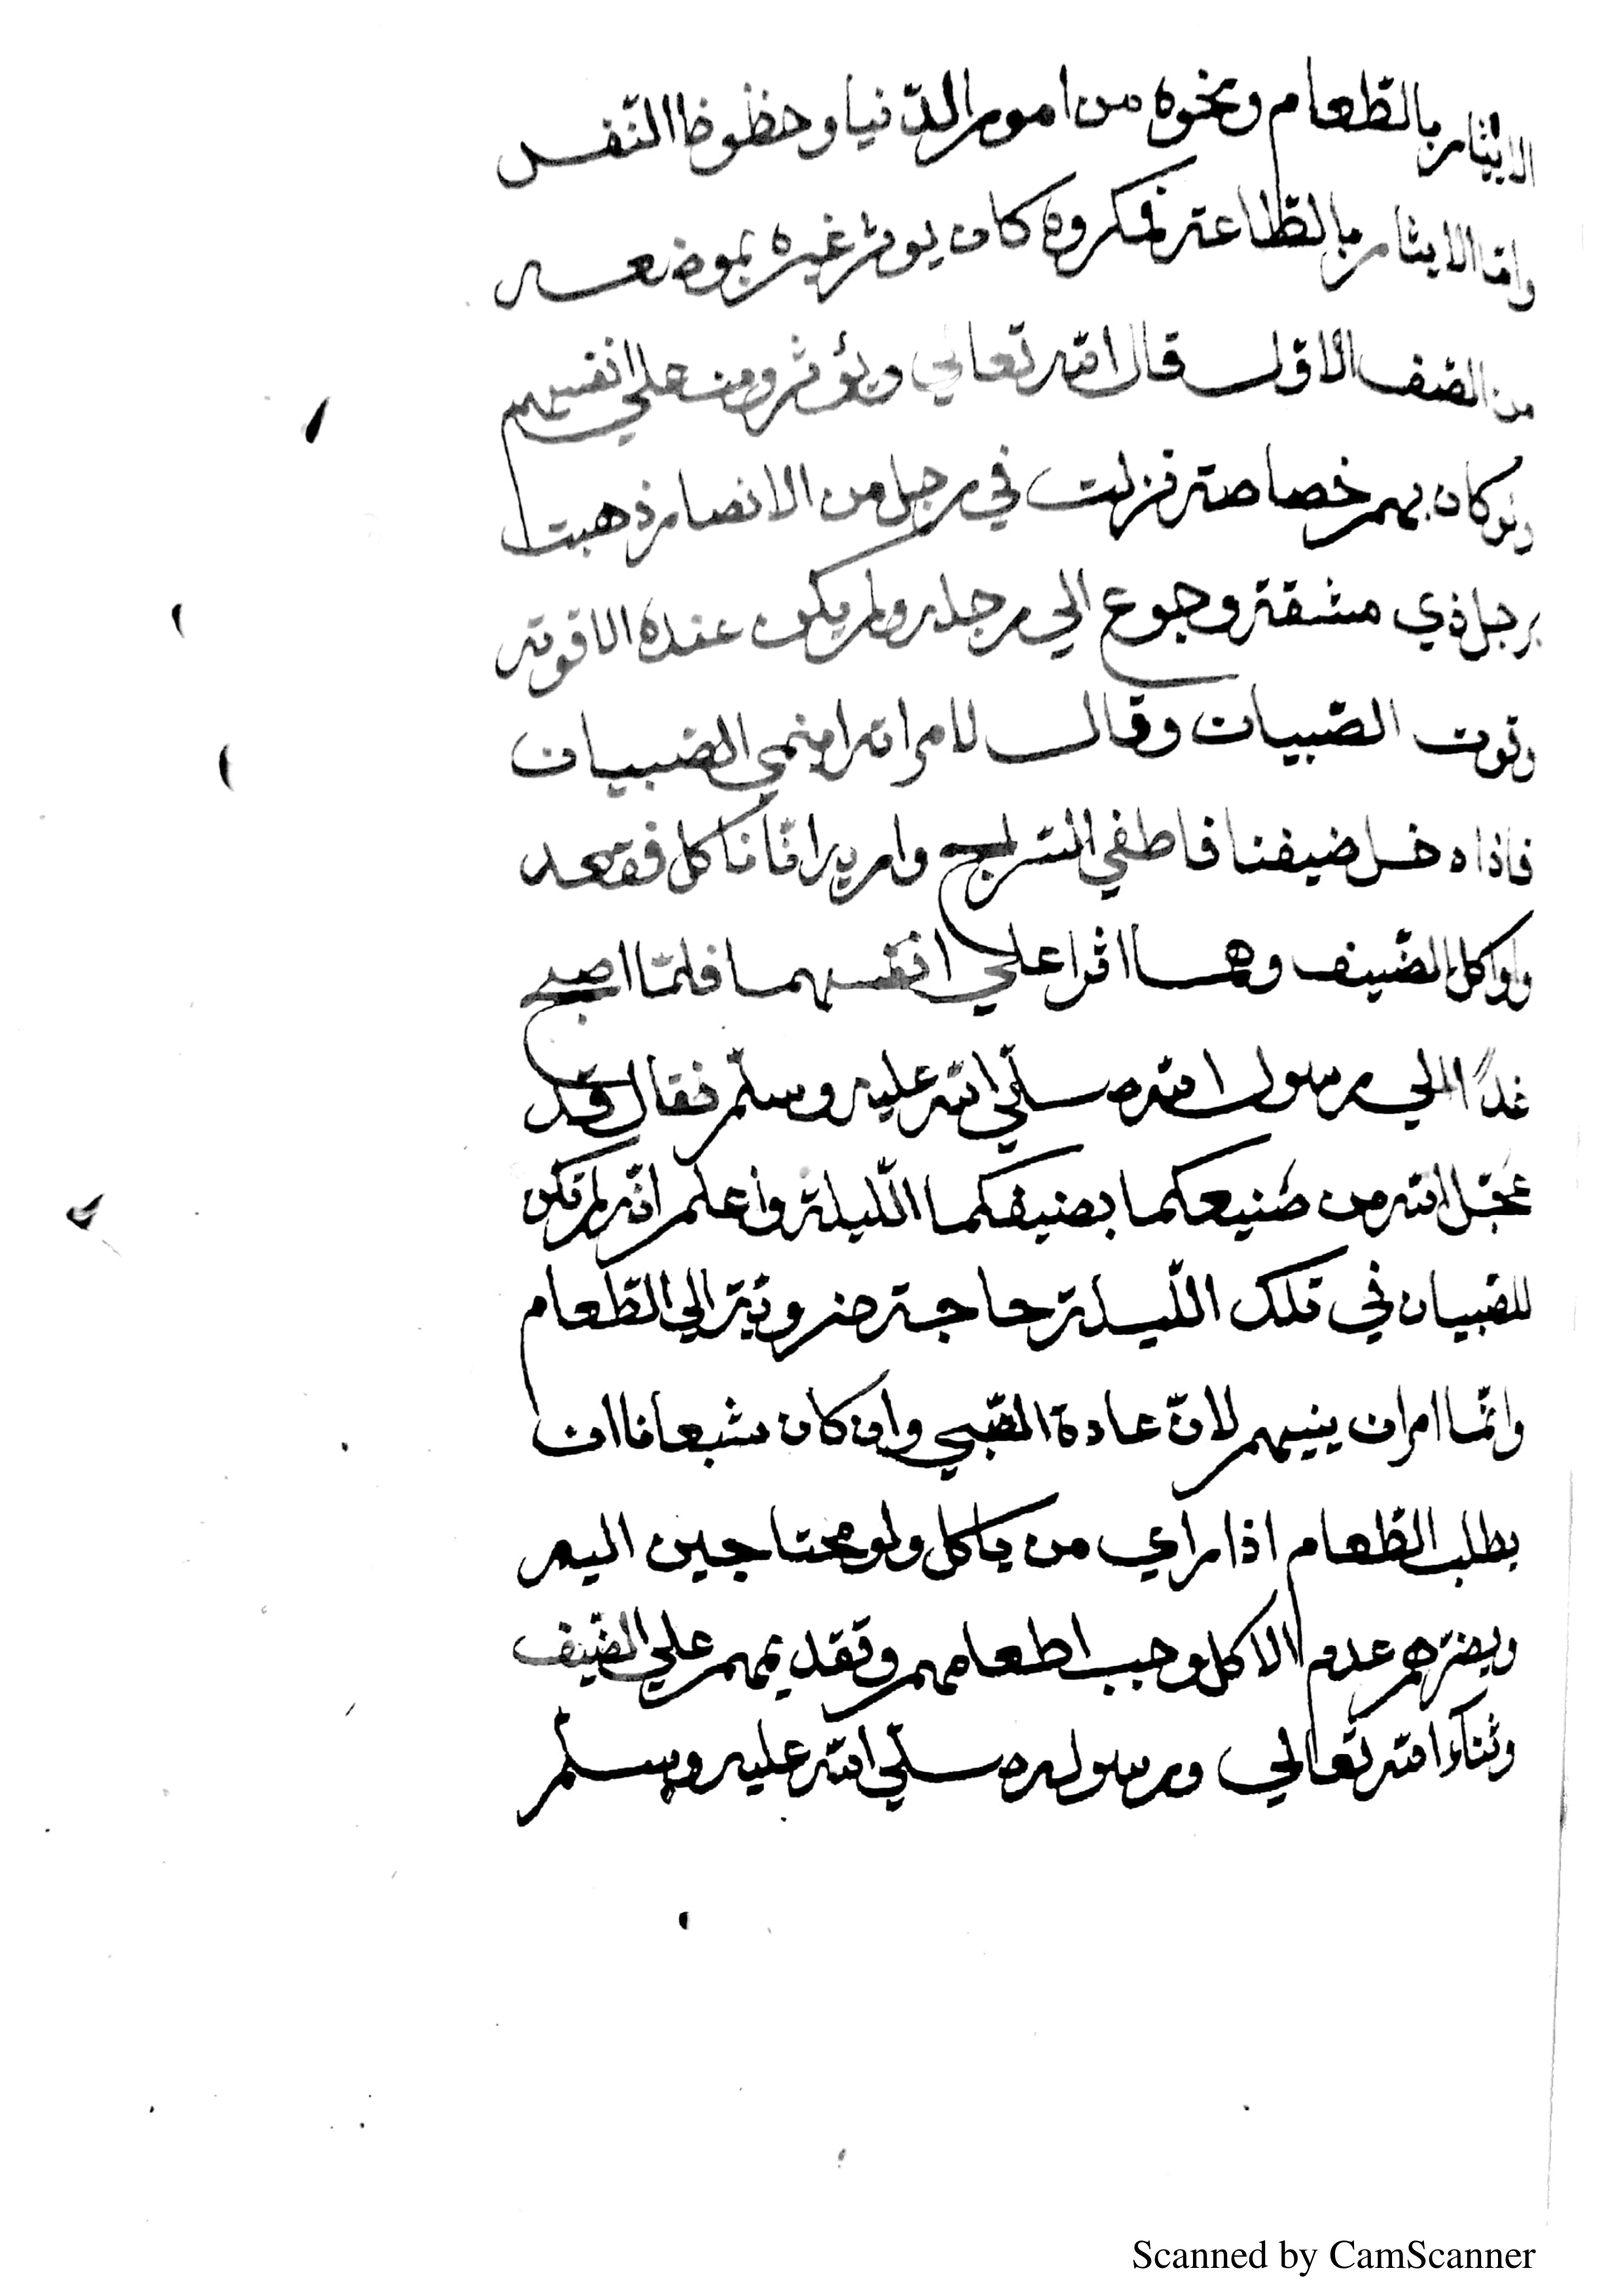 الايثار بالطّعام ونحوه من امور الدّنيا وحظوظ النّفس
وامّا الايثار بالطّاعة فمكروه كان يوثر غيره بموضعه
من الصّف الاوّل قال اللّه تعالي ويؤثرون علي انفسهم
ولو كان بهم خصاصة نزلت في رجل من الانصار ذهبت
برجل ذي مشقة وجوع الي رحله ولم يكن عنده الا قوته
وقوت الصّبيان وقال لامراته انيمي الصّبيان
فاذا دخل ضيفنا فاطفي السّراج واريه انّا ناكل فقعد
واكل الضّيف وهما اثرا علي انفسهما فلمّا اصبح
غدًا الي رسول اللّه صلّي اللّه عليه وسلّم فقال قد
عجّل اللّه من صنيعكما بضيفكما اللّيلة واعلم انّه لم تكن
للصّبيان في تلك اللّيلة حاجة ضروريّة الي الطّعام
وانّما امر ان ينيمهم لانّ عادة الصّبي وان كان شبعانا ان
يطلب الطّعام اذا راي من ياكل ولو محتاجين اليه
ويضرّهم عدم الاكل وجب اطعامهم وتقديمهم علي الضّيف
وثناء اللّه تعالي ورسوله صلّي اللّه عليه وسلّم
Scanned by CamScanner